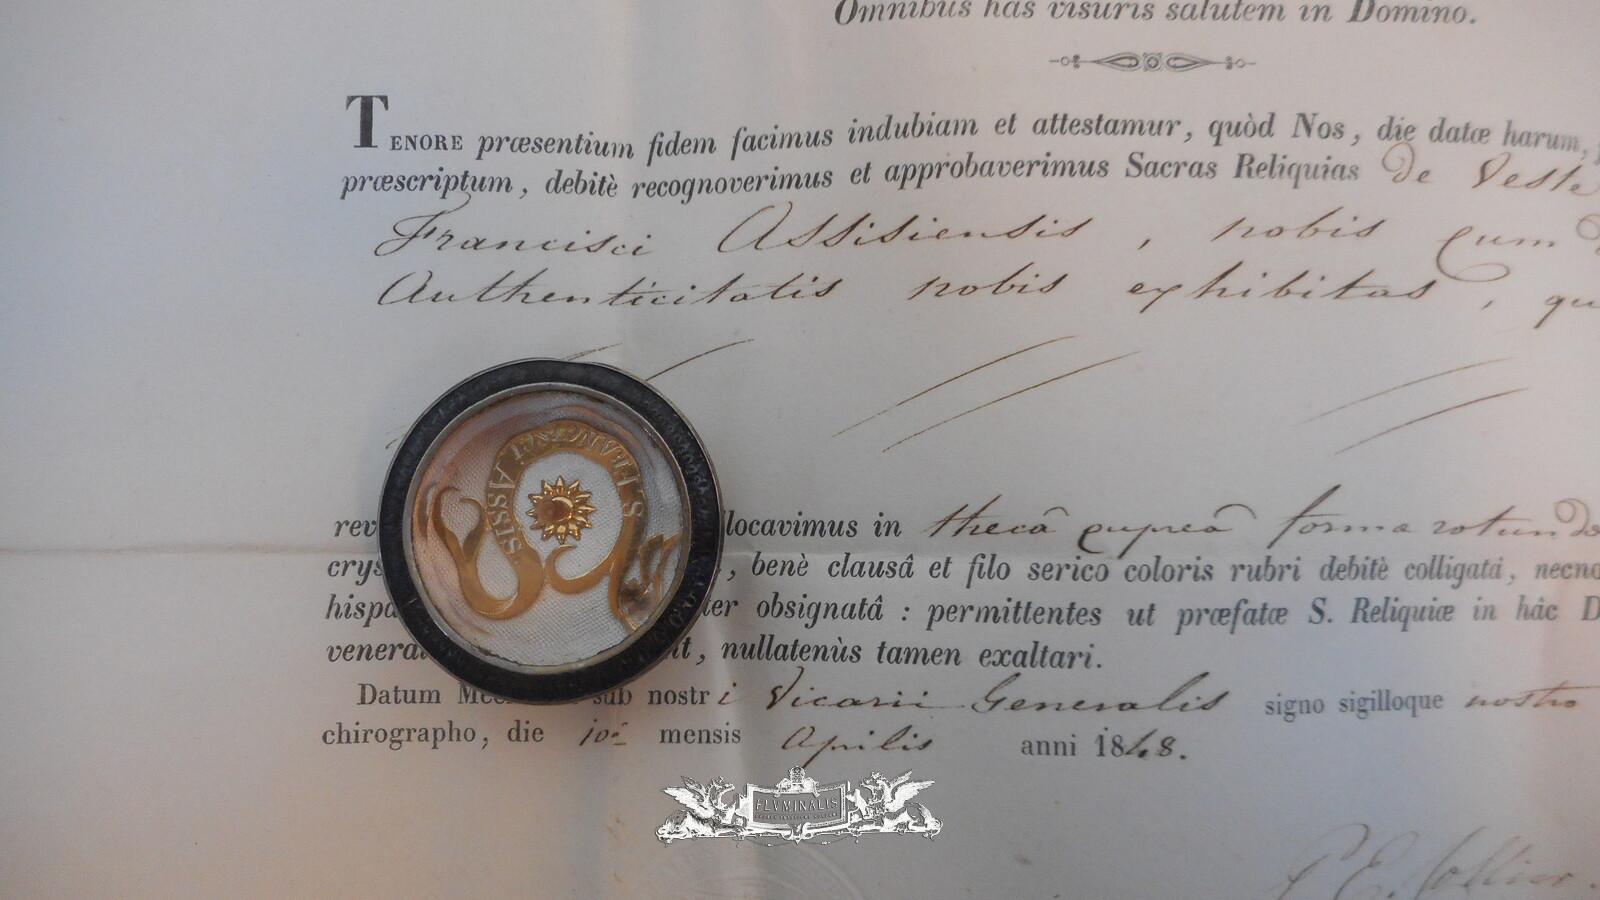 Omnibus has visuris salutem in Domino.
TENORE præsentium fidem facimus indubiam et attestamur, quòd Nos, die datæ harum,
præscriptum, debitè recognoverimus et approbaverimus Sacras Reliquias de Veste
Francisci Assisiensis, nobis cum
Authenticitatis nobis exhibitas, qu
S. FRANCISCI ASSIS
rev locavimus in thecâ cupreâ forma rotunda
crys , benè clausâ et filo serico coloris rubri debitè colligatâ, necno
hispa ter obsignatâ : permittentes ut præfatæ S. Reliquiæ in hâc D
venera nt, nullatenùs tamen exaltari.
Datum Mec sub nostri Vicarii Generalis signo sigilloque nostro
chirographo, die 10â mensis Aprilis anni 1848.
FLVMINALIS